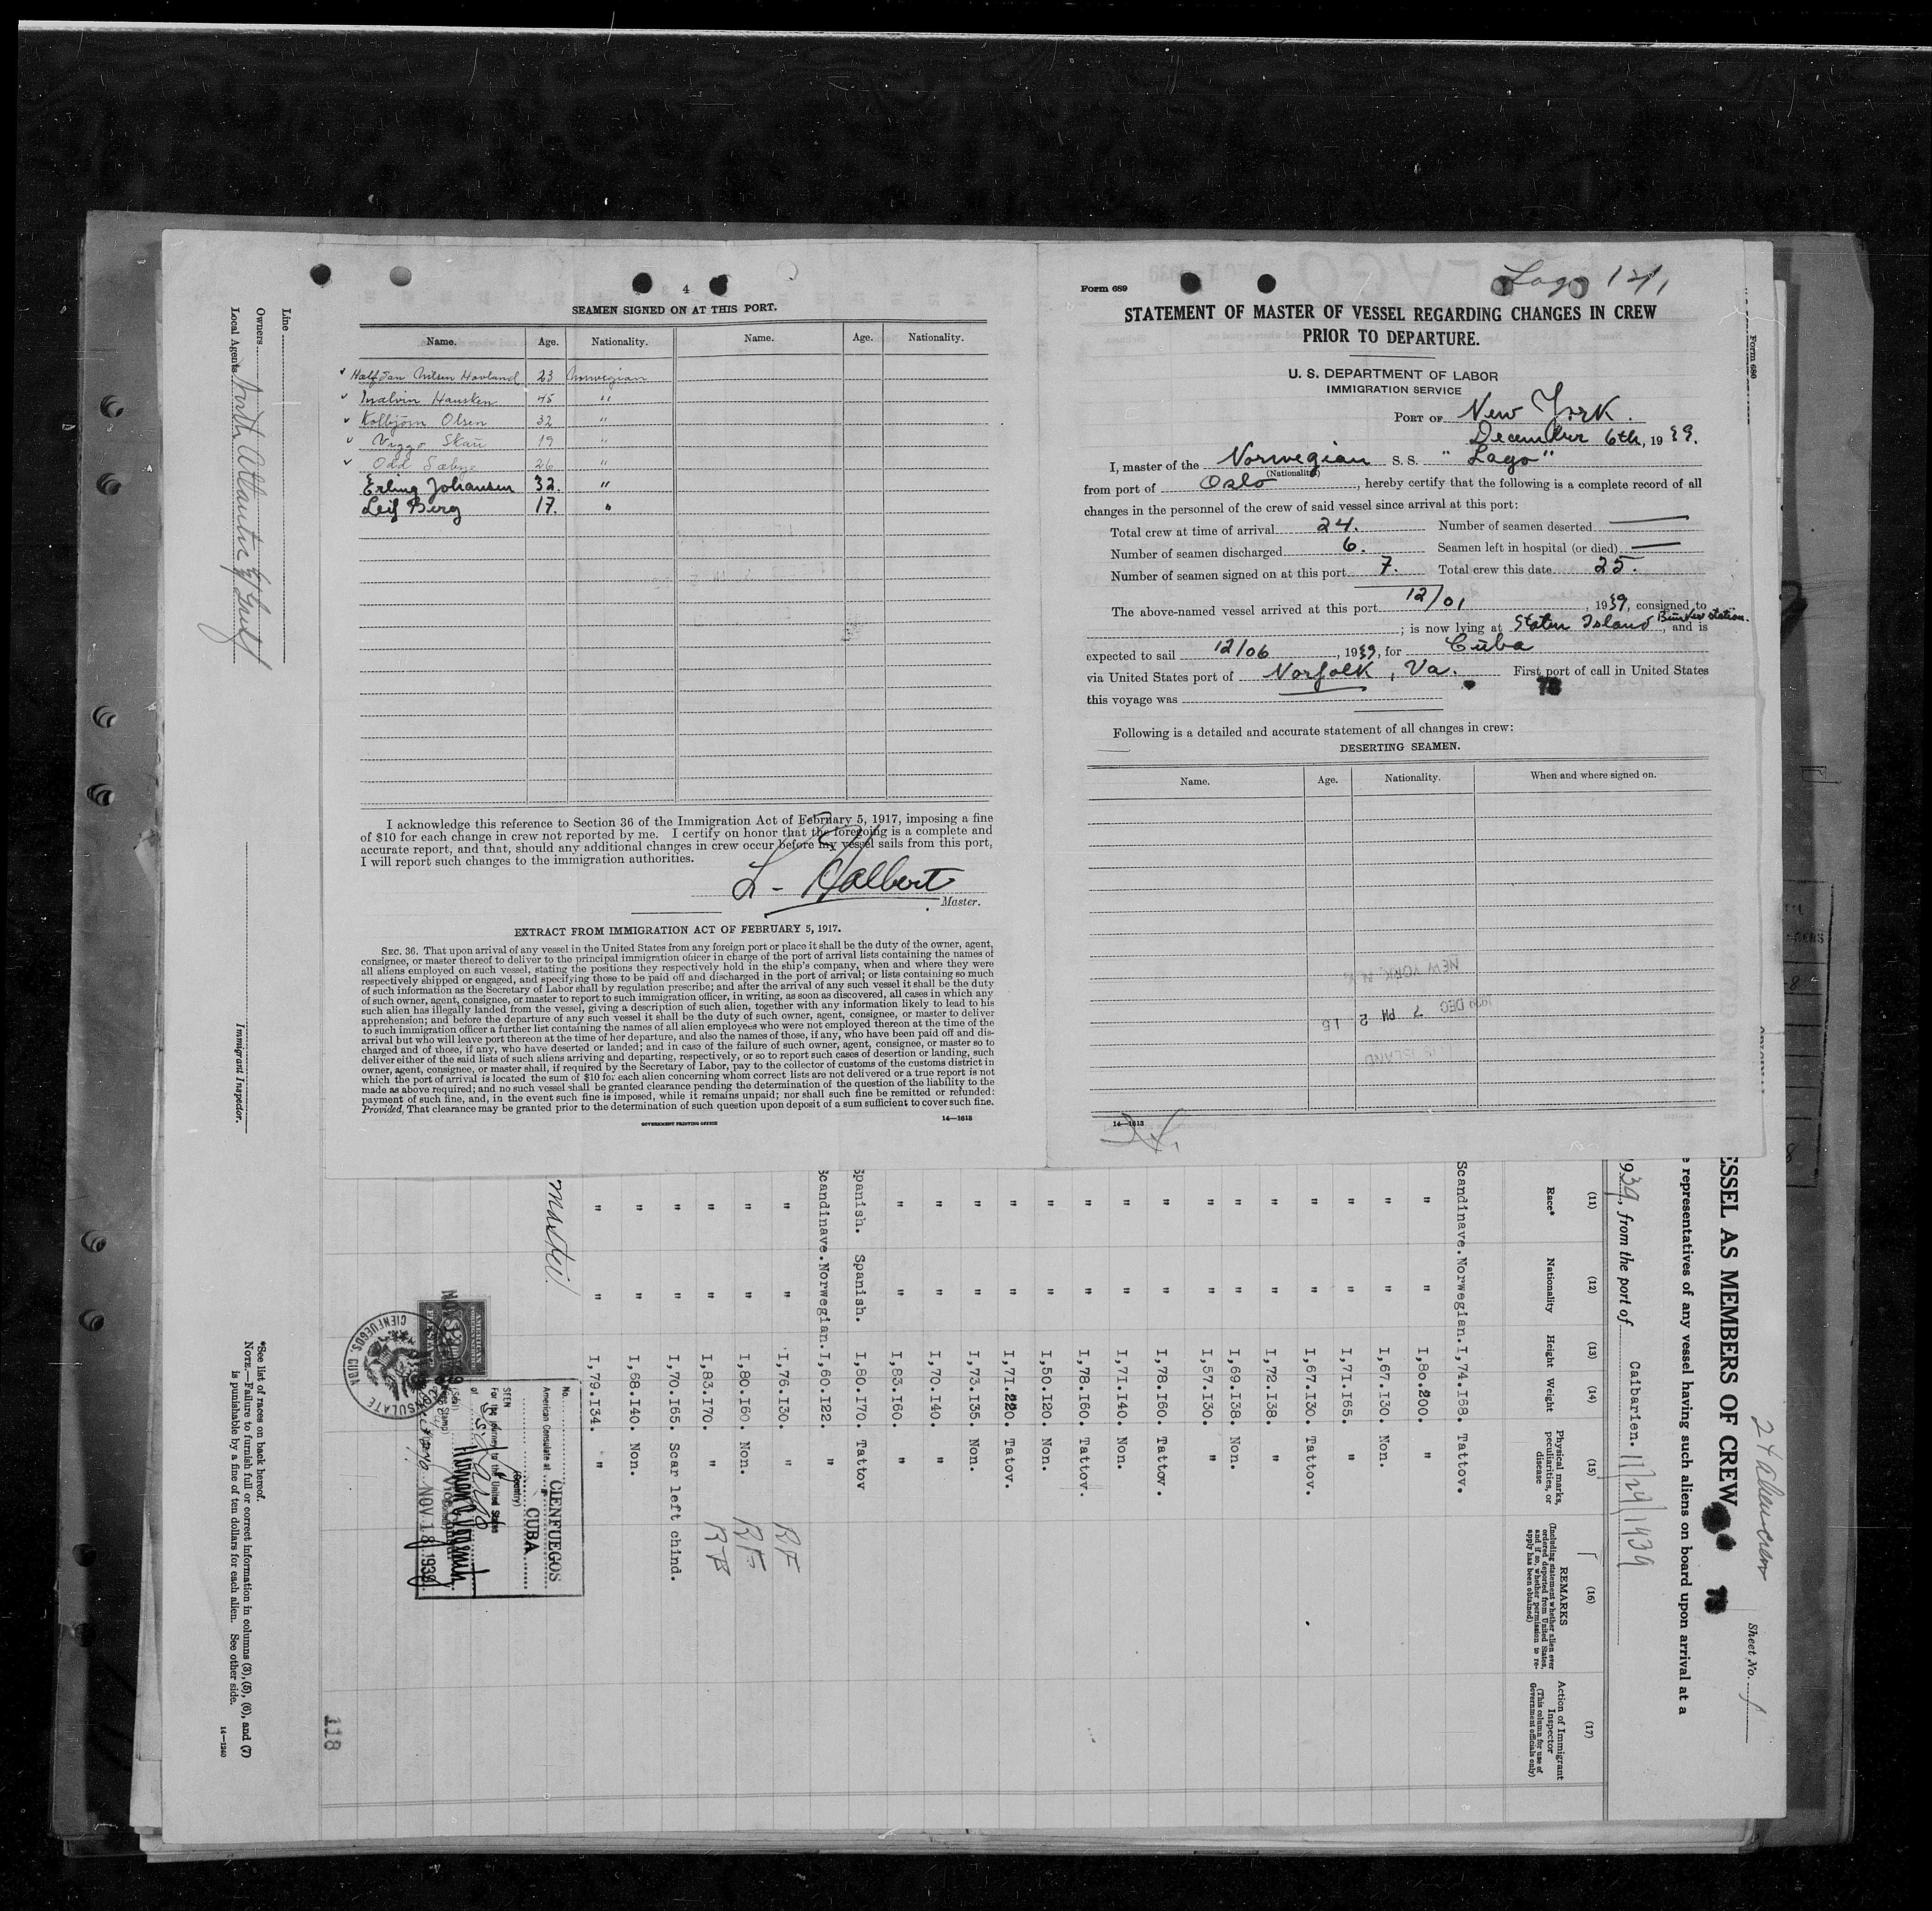 4
SEAMEN SIGNED ON AT THIS PORT.
Name. Age. Nationality. Name. Age. Nationality.
Halfdan Nilsen Hovland 23 Norwegian
Malvin Hausken 45 "
Kolbjörn Olsen 32 "
Viggo Skau 19 "
Odd Sæbye 26 "
Erling Johansen 32. "
Leif Berg 17. "
I acknowledge this reference to Section 36 of the Immigration Act of February 5, 1917, imposing a fine
of $10 for each change in crew not reported by me. I certify on honor that the foregoing is a complete and
accurate report, and that, should any additional changes in crew occur before my vessel sails from this port,
I will report such changes to the immigration authorities.
L. Halbert
Master.
EXTRACT FROM IMMIGRATION ACT OF FEBRUARY 5, 1917.
SEC. 36. That upon arrival of any vessel in the United States from any foreign port or place it shall be the duty of the owner, agent,
consignee, or master thereof to deliver to the principal immigration officer in charge of the port of arrival lists containing the names of
all aliens employed on such vessel, stating the positions they respectively hold in the ship's company, when and where they were
respectively shipped or engaged, and specifying those to be paid off and discharged in the port of arrival; or lists containing so much
of such information as the Secretary of Labor shall by regulation prescribe; and after the arrival of any such vessel it shall be the duty
of such owner, agent, consignee, or master to report to such immigration officer, in writing, as soon as discovered, all cases in which any
such alien has illegally landed from the vessel, giving a description of such alien, together with any information likely to lead to his
apprehension; and before the departure of any such vessel it shall be the duty of such owner, agent, consignee, or master to deliver
to such immigration officer a further list containing the names of all alien employees who were not employed thereon at the time of the
arrival but who will leave port thereon at the time of her departure, and also the names of those, if any, who have been paid off and dis-
charged and of those, if any, who have deserted or landed; and in case of the failure of such owner, agent, consignee, or master so to
deliver either of the said lists of such aliens arriving and departing, respectively, or so to report such cases of desertion or landing, such
owner, agent, consignee, or master shall, if required by the Secretary of Labor, pay to the collector of customs of the customs district in
which the port of arrival is located the sum of $10 for each alien concerning whom correct lists are not delivered or a true report is not
made as above required; and no such vessel shall be granted clearance pending the determination of the question of the liability to the
payment of such fine, and, in the event such fine is imposed, while it remains unpaid; nor shall such fine be remitted or refunded:
Provided, That clearance may be granted prior to the determination of such question upon deposit of a sum sufficient to cover such fine.
GOVERNMENT PRINTING OFFICE 14—1613
Form 689
Lago 12/1
STATEMENT OF MASTER OF VESSEL REGARDING CHANGES IN CREW
PRIOR TO DEPARTURE.
U. S. DEPARTMENT OF LABOR
IMMIGRATION SERVICE
PORT OF New York.
December 6th, 1939.
I, master of the Norwegian S. S. "Lago"
(Nationality)
from port of Oslo, hereby certify that the following is a complete record of all
changes in the personnel of the crew of said vessel since arrival at this port:
Total crew at time of arrival 24. Number of seamen deserted —
Number of seamen discharged 6. Seamen left in hospital (or died) —
Number of seamen signed on at this port 7. Total crew this date 25.
The above-named vessel arrived at this port 12/01, 1939, consigned to
; is now lying at Staten Island Bunker station, and is
expected to sail 12/06, 1939, for Cuba
via United States port of Norfolk, Va. First port of call in United States
this voyage was
78
Following is a detailed and accurate statement of all changes in crew:
DESERTING SEAMEN.
Name. Age. Nationality. When and where signed on.
NEW YORK
1939 DEC 7 PM 2 15
14—1613
Form 680
24 alien crew
Sheet No. 1
78
ESSEL AS MEMBERS OF CREW
e representatives of any vessel having such aliens on board upon arrival at a
1939, from the port of Caibarien. 11/24/1939
(11) (12) (13) (14) (15) (16) (17)
Race* Nationality Height Weight Physical marks, peculiarities, or disease
REMARKS
(Including statement whether alien ever ordered deported from United States, and if so, whether permission to reapply has been obtained)
Action of Immigrant Inspector
(This column for use of Government officials only)
Scandinave. Norwegian. I,74. I68. Tattov.
" " I,80. 200. "
" " I,67. I30. Non.
" " I,71. I65. "
" " I,67. I30. Tattov.
" " I,72. I38. "
" " I,69. I38. Non.
" " I,57. I30. "
" " I,78. I60. Tattov.
" " I,71. I40. Non.
" " I,78. I60. Tattov.
" " I,50. I20. Non.
" " I,71. 220. Tatov.
" " I,73. I35. Non.
" " I,70. I40. "
" " I,83. I60. "
Spanish. Spanish. I,80. I70. Tattov
Scandinave. Norwegian. I,60. I22. "
" " I,76. I30. " RF
" " I,80. I60. Non. RF
" " I,83. I70. " RB
" " I,70. I65. Scar left chind.
" " I,68. I40. Non.
" " I,79. I34. "
Master.
No.
American Consulate at CIENFUEGOS
CUBA
(Country)
SEEN
For the journey to the United States
of S.S. Lago
NOV. 18 1939
AMERICAN
CONSULATE
CIENFUEGOS, CUBA
118
Line
Owners
Local Agents North Atlantic & Gulf
Immigrant Inspector.
*See list of races on back hereof.
NOTE.—Failure to furnish full or correct information in columns (3), (5), (6), and (7)
is punishable by a fine of ten dollars for each alien. See other side.
14—1240